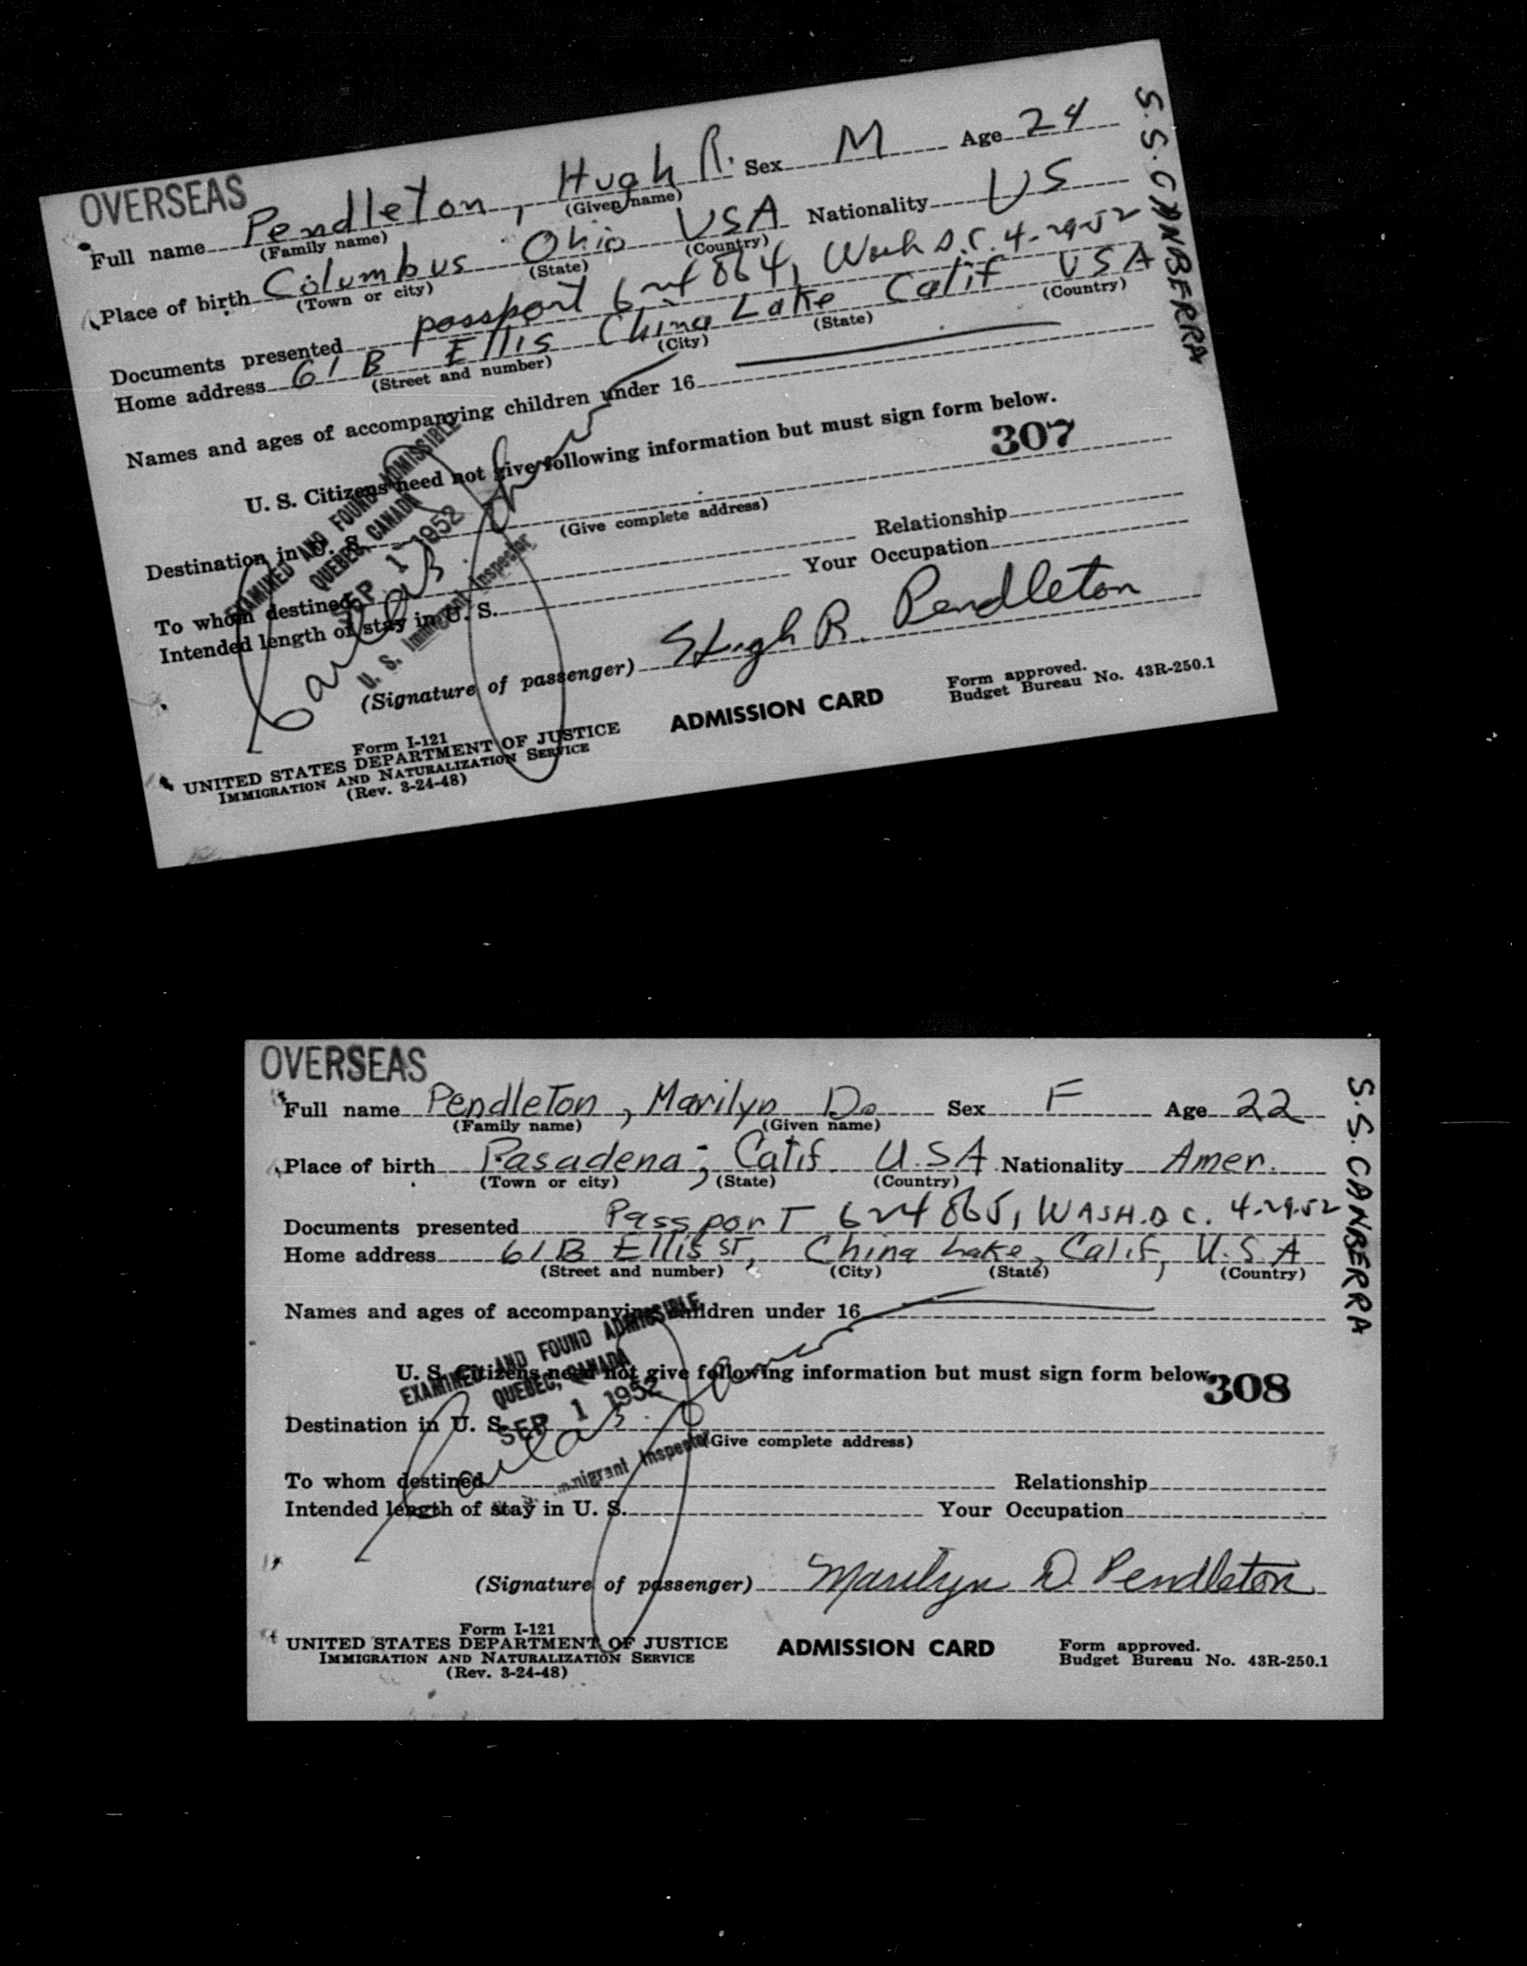 OVERSEAS
Full name Pendleton, Hugh R. Sex M Age 24
(Family name) (Given name)
Place of birth Columbus Ohio USA Nationality US
(Town or city) (State) (Country)
Documents presented passport 624864, Wash D.C. 4-29-52
Home address 61 B Ellis China Lake Calif USA
(Street and number) (City) (State) (Country)
Names and ages of accompanying children under 16
U. S. Citizens need not give following information but must sign form below.
307
Destination in U. S.
(Give complete address)
To whom destined Relationship
Intended length of stay in U. S. Your Occupation
EXAMINED AND FOUND ADMISSIBLE
QUEBEC, CANADA
SEP 1 1952
U. S. Immigrant Inspector
(Signature of passenger) Hugh R. Pendleton
Form I-121
UNITED STATES DEPARTMENT OF JUSTICE
IMMIGRATION AND NATURALIZATION SERVICE
(Rev. 3-24-48)
ADMISSION CARD
Form approved.
Budget Bureau No. 43R-250.1
S.S. CANBERRA
OVERSEAS
Full name Pendleton, Marilyn D. Sex F Age 22
(Family name) (Given name)
Place of birth Pasadena, Calif U.S.A Nationality Amer.
(Town or city) (State) (Country)
Documents presented Passport 624865, WASH. D C. 4-29-52
Home address 61B Ellis ST, China Lake, Calif, U.S.A
(Street and number) (City) (State) (Country)
Names and ages of accompanying children under 16
U. S. Citizens need not give following information but must sign form below.
308
Destination in U. S.
(Give complete address)
To whom destined Relationship
Intended length of stay in U. S. Your Occupation
EXAMINED AND FOUND ADMISSIBLE
QUEBEC, CANADA
SEP 1 1952
Immigrant Inspector
(Signature of passenger) Marilyn D. Pendleton
Form I-121
UNITED STATES DEPARTMENT OF JUSTICE
IMMIGRATION AND NATURALIZATION SERVICE
(Rev. 3-24-48)
ADMISSION CARD
Form approved.
Budget Bureau No. 43R-250.1
S.S. CANBERRA